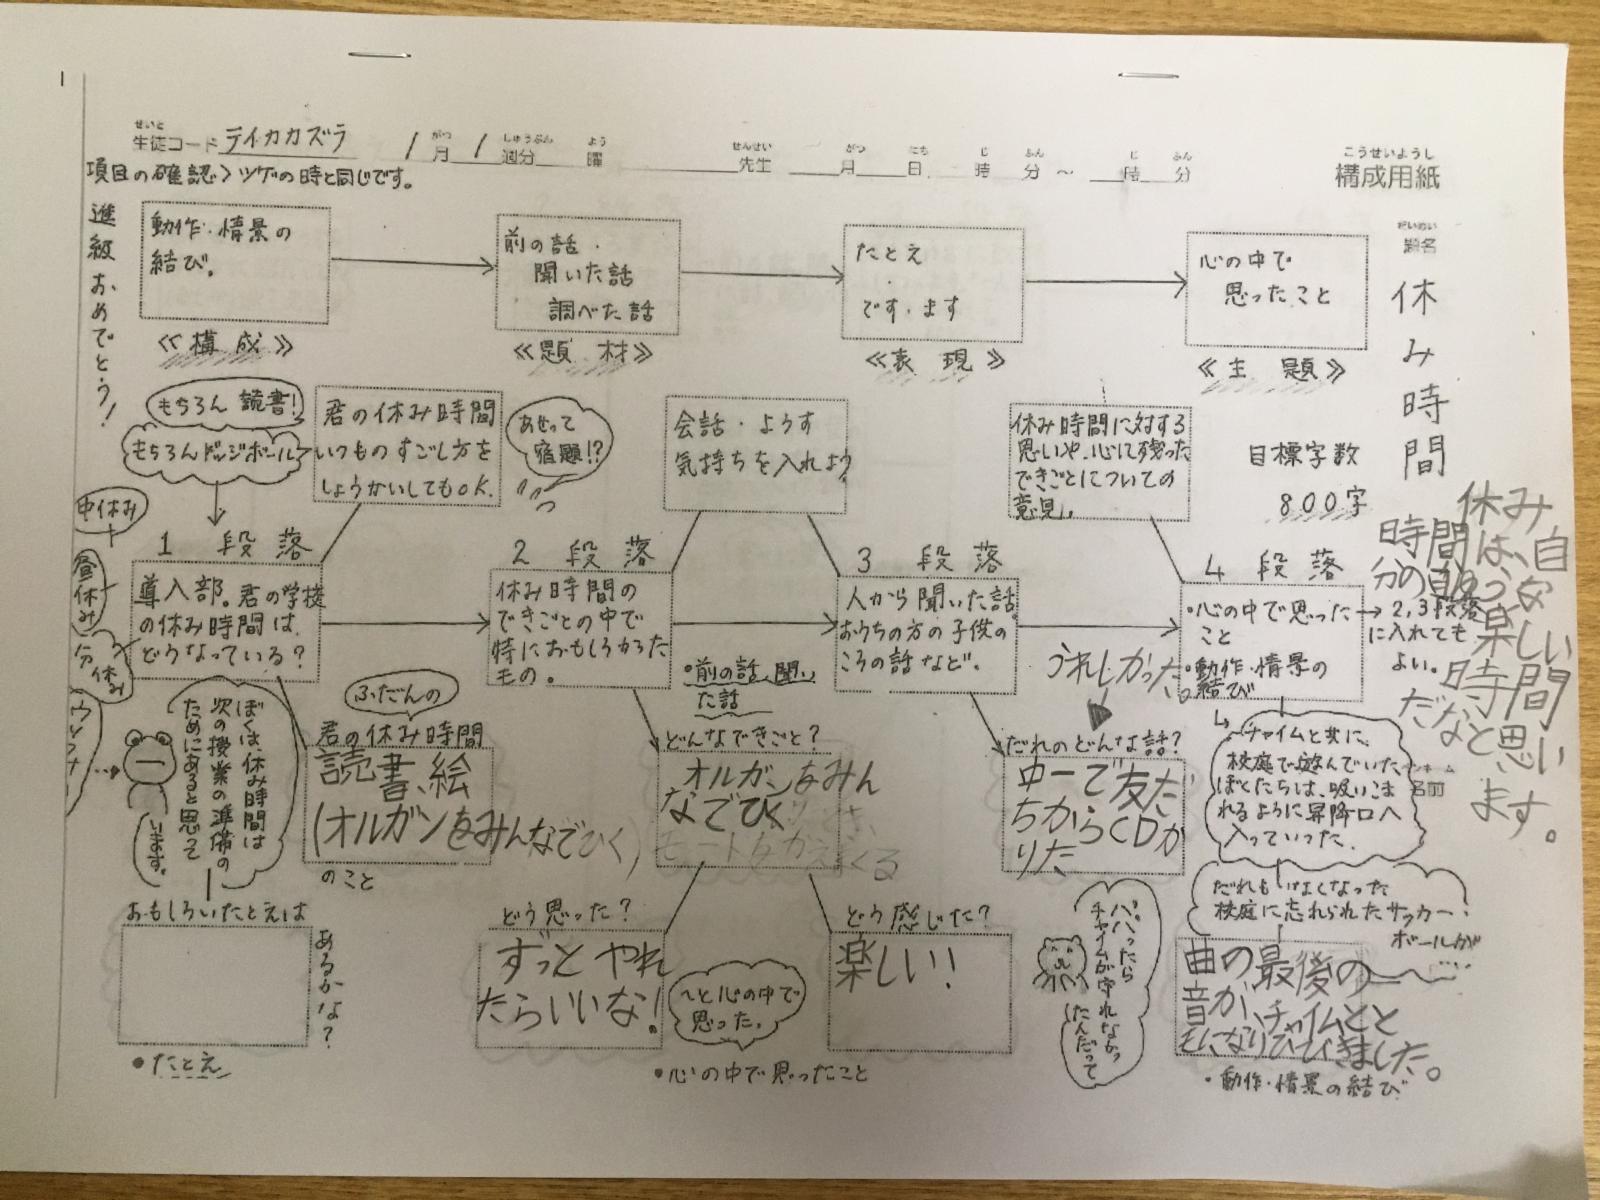 せいと
生徒コード テイカカズラ
がつ しゅうぶん よう
1月1週分 曜
せんせい がつ にち じ ふん じ ふん
先生 月 日 時 分 ~ 時 分
こうせいようし
構成用紙
項目の確認>ツゲの時と同じです。
進級おめでとう!
だいめい
題名
休み時間
動作・情景の
結び。
≪構成≫
前の話・
聞いた話
調べた話
≪題材≫
たとえ
・
です・ます
≪表現≫
心の中で
思ったこと
≪主題≫
もちろん読書!
もちろんドッジボール
君の休み時間
いつものすごし方を
しょうかいしてもOK.
あせって
宿題!?
会話・ようす
気持ちを入れよう
休み時間に対する
思いや、心に残った
できごとについての
意見。
目標字数
800字
中休み
昼休み
分休み
1段落
導入部。君の学校
の休み時間は、
どうなっている?
2段落
休み時間の
できごとの中で
特におもしろかった
もの。
3段落
人から聞いた話。
おうちの方の子供の
ころの話など。
4段落
・心の中で思った
こと
→2,3段落
に入れても
よい。
・動作・情景の
結び
うれしかった。
休み
時間は、自
分の
楽しい
時間
だなと思い
ます。
ぼくは、休み時間は
次の授業の準備の
ためにあると思って
います。
ふだんの
君の休み時間
読書、絵
(オルガンをみんなでひく)
のこと
・前の話、聞い
た話
どんなできごと?
オルガンをみん
なでひく
だれのどんな話?
中一で友だ
ちからCDか
りた
~チャイムと共に、
校庭で遊んでいた
ぼくたちは、吸いこま
れるように昇降口へ
入っていった.
名前
だれもいなくなった
校庭に忘れられたサッカー
ボールが…
おもしろいたとえは
あるかな?
・たとえ
どう思った?
ずっとやれ
たらいいな!
~と心の中で
思った。
・心の中で思ったこと
どう感じた?
楽しい!
パパったら
チャイムが守れなかっ
たんだって
曲の最後の
音が、チャイムとと
もになりひびきました。
・動作・情景の結び